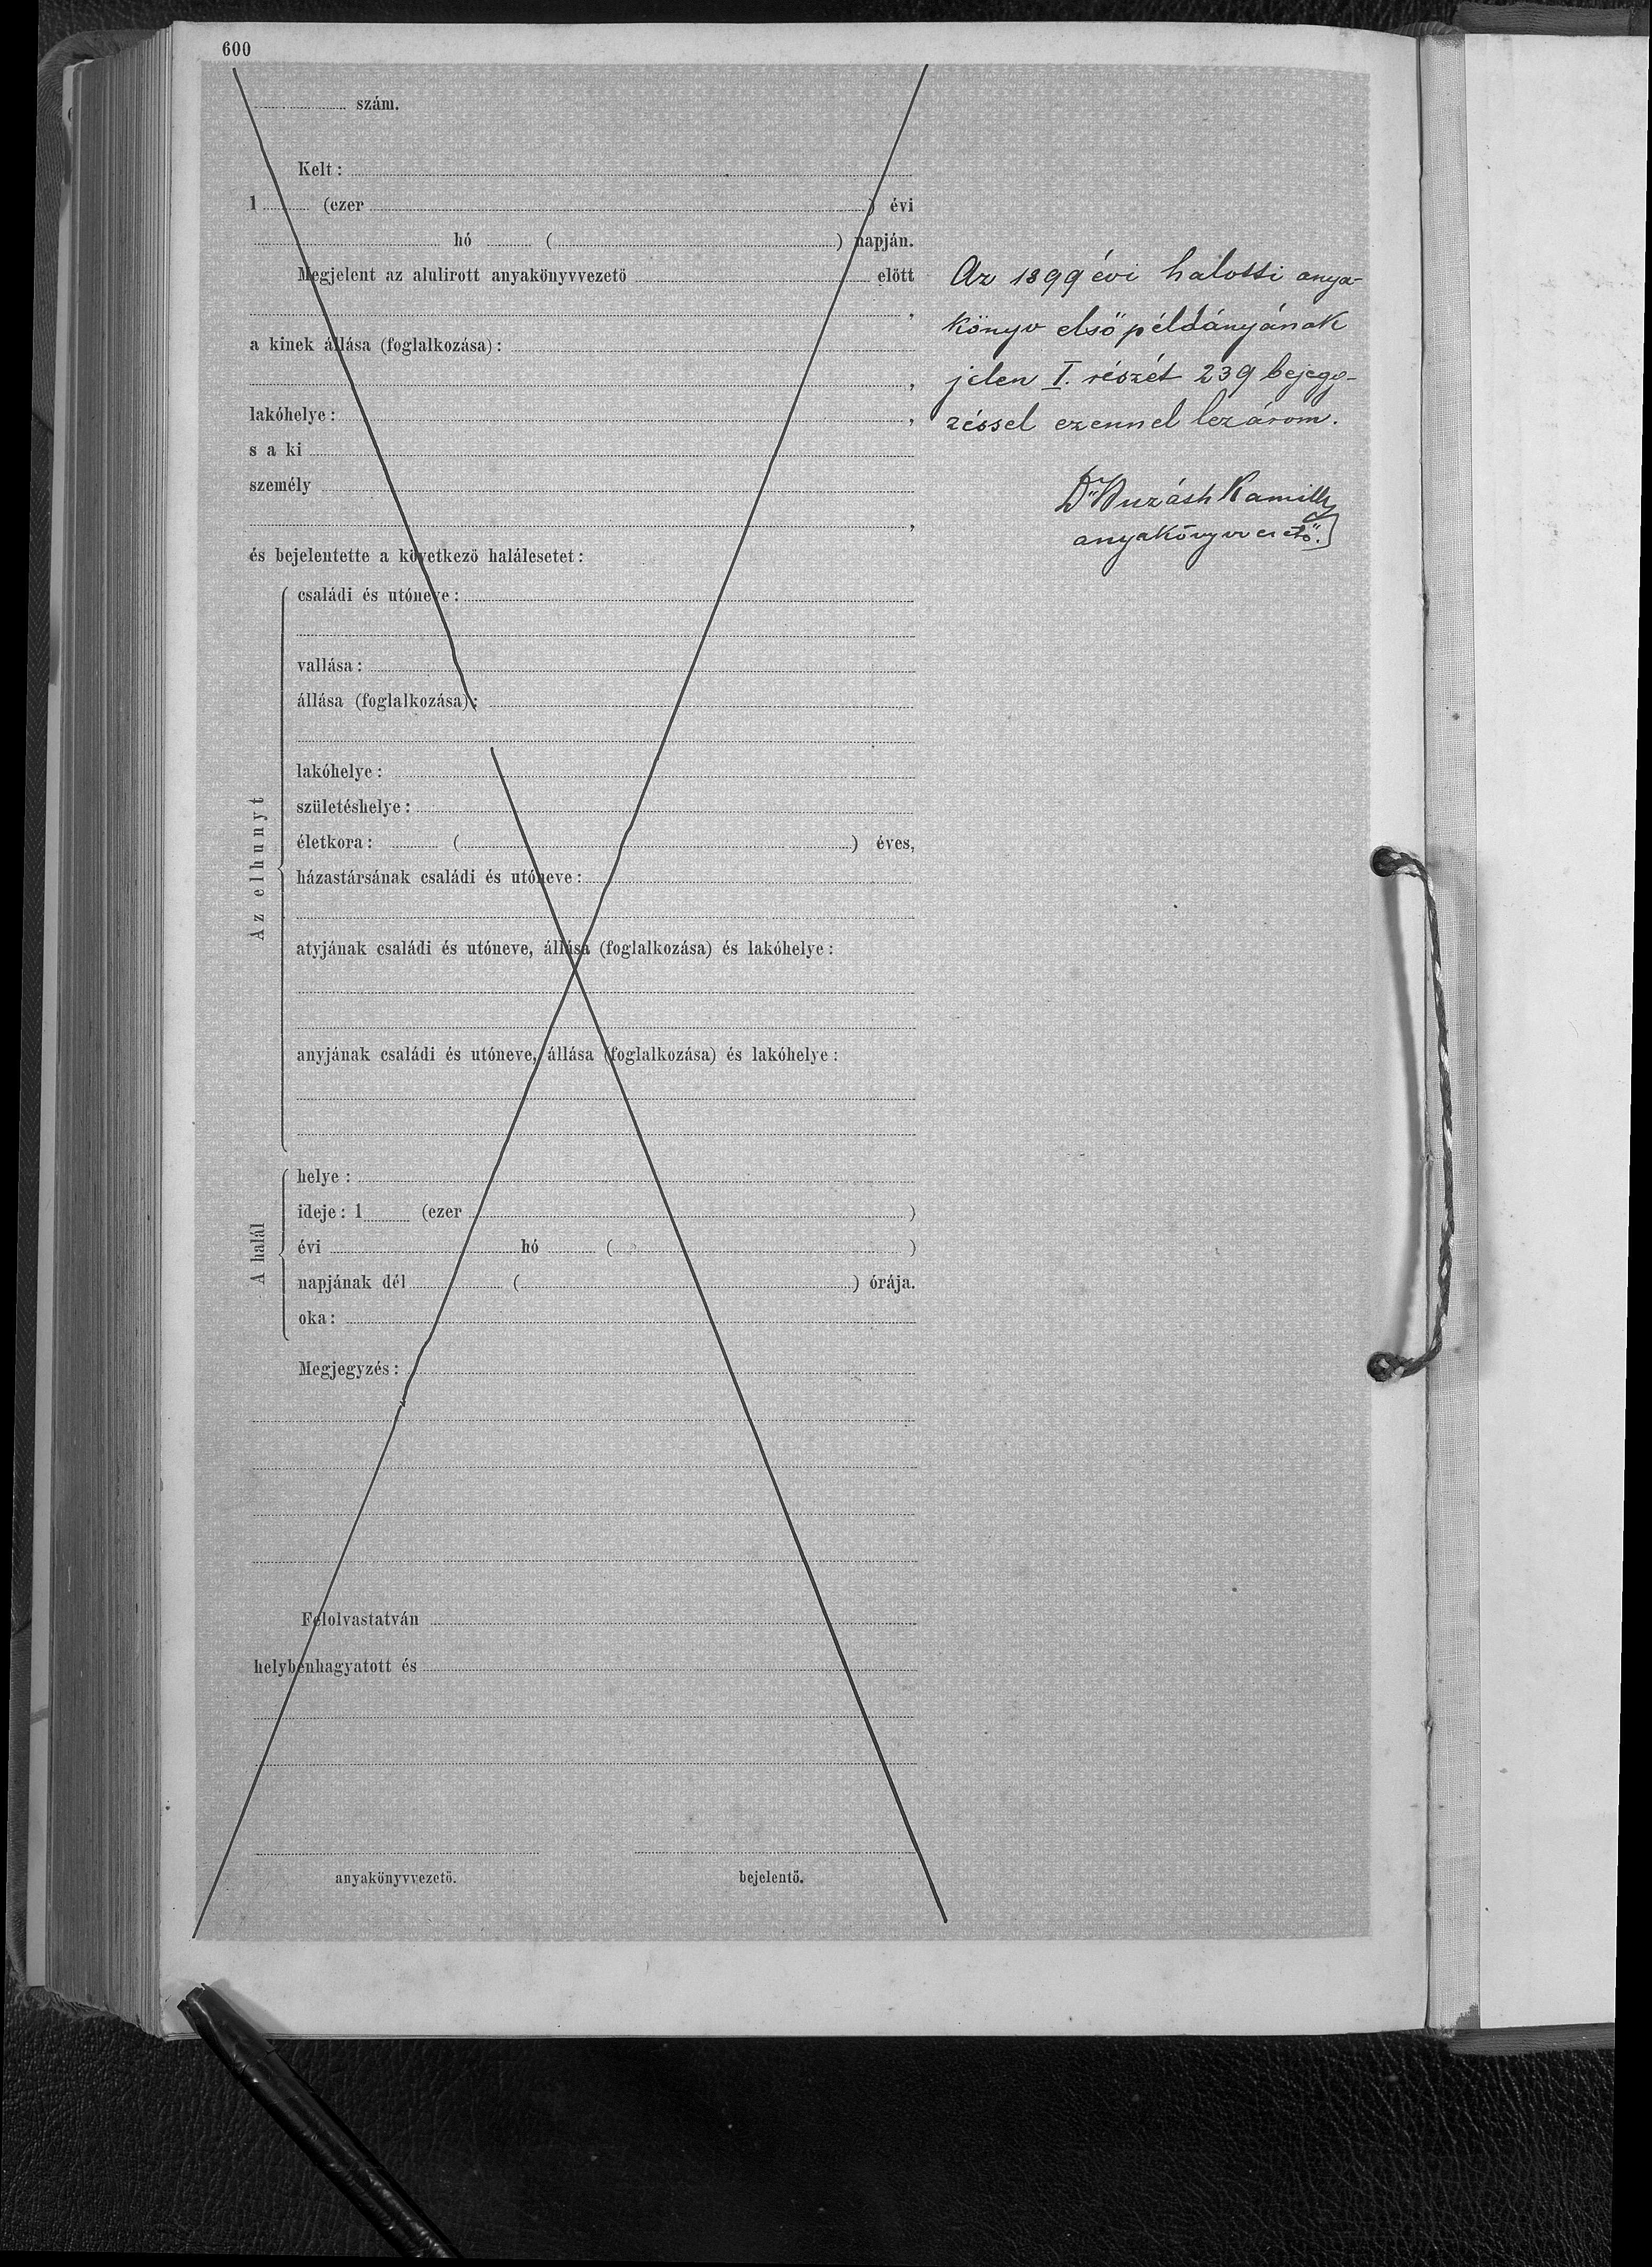 600
szám.
Kelt:
1 (ezer ) évi
hó ( ) napján.
Megjelent az alulirott anyakönyvvezető előtt
,
a kinek állása (foglalkozása):
,
lakóhelye: ,
s a ki
személy
,
és bejelentette a következő halálesetet:
Az elhunyt
családi és utóneve:
vallása:
állása (foglalkozása):
lakóhelye:
születéshelye:
életkora: ( ) éves,
házastársának családi és utóneve:
atyjának családi és utóneve, állása (foglalkozása) és lakóhelye:
anyjának családi és utóneve, állása (foglalkozása) és lakóhelye:
A halál
helye:
ideje: 1 (ezer )
évi hó ( )
napjának dél ( ) órája.
oka:
Megjegyzés:
Felolvastatván
helybenhagyatott és
anyakönyvvezető.
bejelentő.
Az 1899 évi halotti anya-
könyv első példányának
jelen I. részét 239 bejegy-
zéssel ezennel lezárom.
Dr Kamill
anyakönyvvezető.